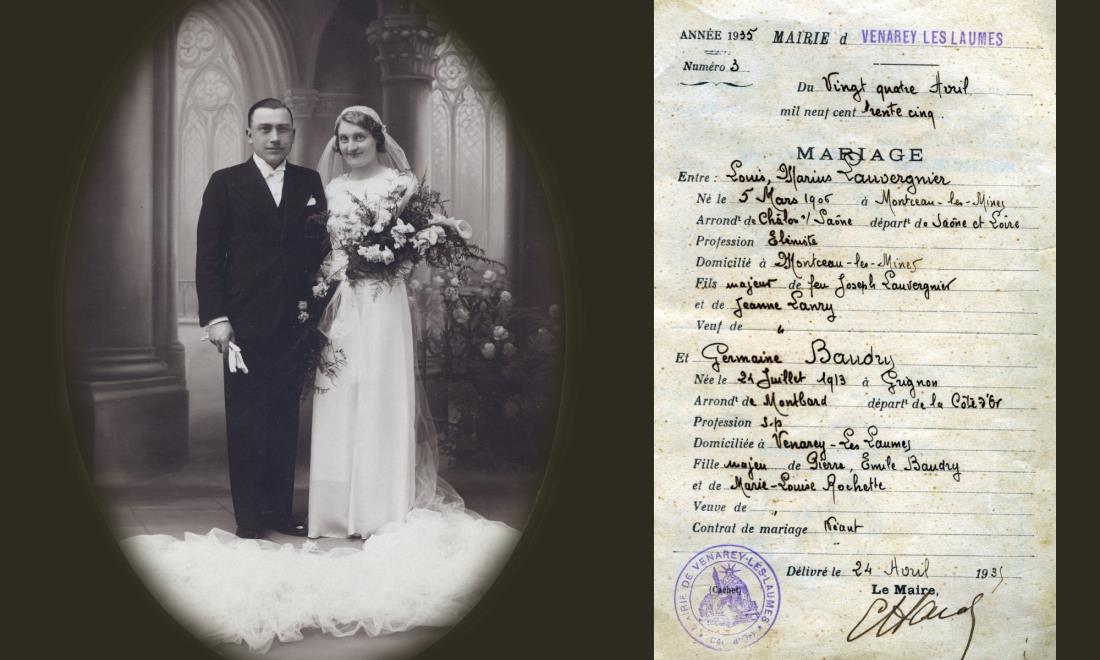 ANNÉE 1935 MAIRIE d VENAREY LES LAUMES
Numéro 3
Du Vingt quatre Avril
mil neuf cent trente cinq
MARIAGE
Entre : Louis, Marius Lauvergnier
Né le 5 Mars 1906 à Montceau-les-Mines
Arrondt de Châlon s/ Saône départt de Saône et Loire
Profession Ebéniste
Domicilié à Montceau-les-Mines
Fils majeur de feu Joseph Lauvergnier
et de Jeanne Lanry
Veuf de "
Et Germaine Baudry
Née le 21 Juillet 1913 à Grignon
Arrondt de Montbard départt de la Côte d'Or
Profession s.p
Domiciliée à Venarey-Les Laumes
Fille majeu de Pierre, Emile Baudry
et de Marie-Louise Rochette
Veuve de "
Contrat de mariage Néant
Délivré le 24 Avril 1935
Le Maire,
(Cachet)
MAIRIE DE VENAREY-LES-LAUMES